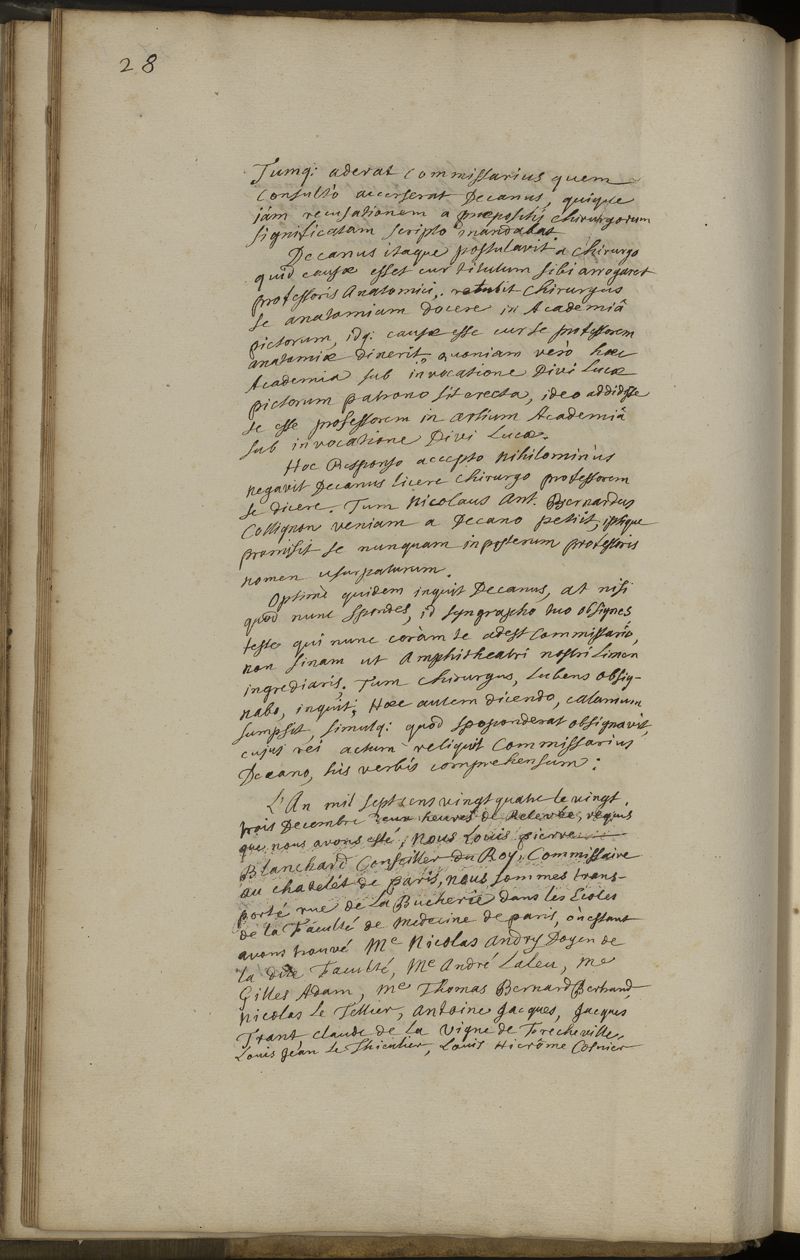 28
Tumq: aderat commissarius quem
consultò accerserat Decanus, quique
jám recusationem a præpositis chirurgorum
significatam scripto mandabat
Decanus itaque postulavit a Chirurgo
quid causæ esset cur titulum sibi arrogaret
professoris Anatomici, Chirurgus
se anatomiam docere in Academiâ
pictorum, idq: causæ esse cur se professorem
anatomiæ dixerit, quoniam verò hæc
Academia sub invocatione Divi Lucæ
pictorum patrono sit erecta, ideo addidisse
se esse professorem in artium Academiâ
sub invocatione Divi Lucæ.
Hoc Responso accepto nihilominùs
negavit Decanus licere chirurgo professorem
se dicere. Tum Nicolaus Ant. Bernardus
Collignon veniam a Decano petiit, ipsique
promisit se nunquam inposterum professoris
nomen usurpaturum.
Optimè quidem inquit Decanus, at nisi
quod nunc spondes, id syngrapho tuo obsignes
teste qui nunc coràm te adest commissario,
non sinam ut Amphitheatri nostri limen
ingrediaris. Tum chirurgus, lubens obsig-
nabo, inquit; Hæc autem dicendo, calamum
sumpsit, simulq: quod spoponderat obsignavit,
cujus rei actum reliquit Commissarius
Decano, his verbis comprehensum:
L'An mil sept cens vingt quatre le vingt
trois Decembre deux heures de Relevée, requis
que nous avons esté, Nous Louis pierre
Blanchard Conseiller du Roy, Commissaire
au chatelét de paris, nous sommes trans-
porté rue de la Bucherie dans les Ecoles
de la Faculté de Medecine de paris, où estant
avons trouvé Me Nicolas Andry Doyen de
la dite Faculté, Me André Laleu, Me
Gilles Adam, Me Thomas Bernard Bertrand
Nicolas Le Tellier, Antoine Jacques, Jacques
Frant claude de La Vigne de Frecheville,
Louis Jean Le Thieulier, Louis Hierôme Cosnier